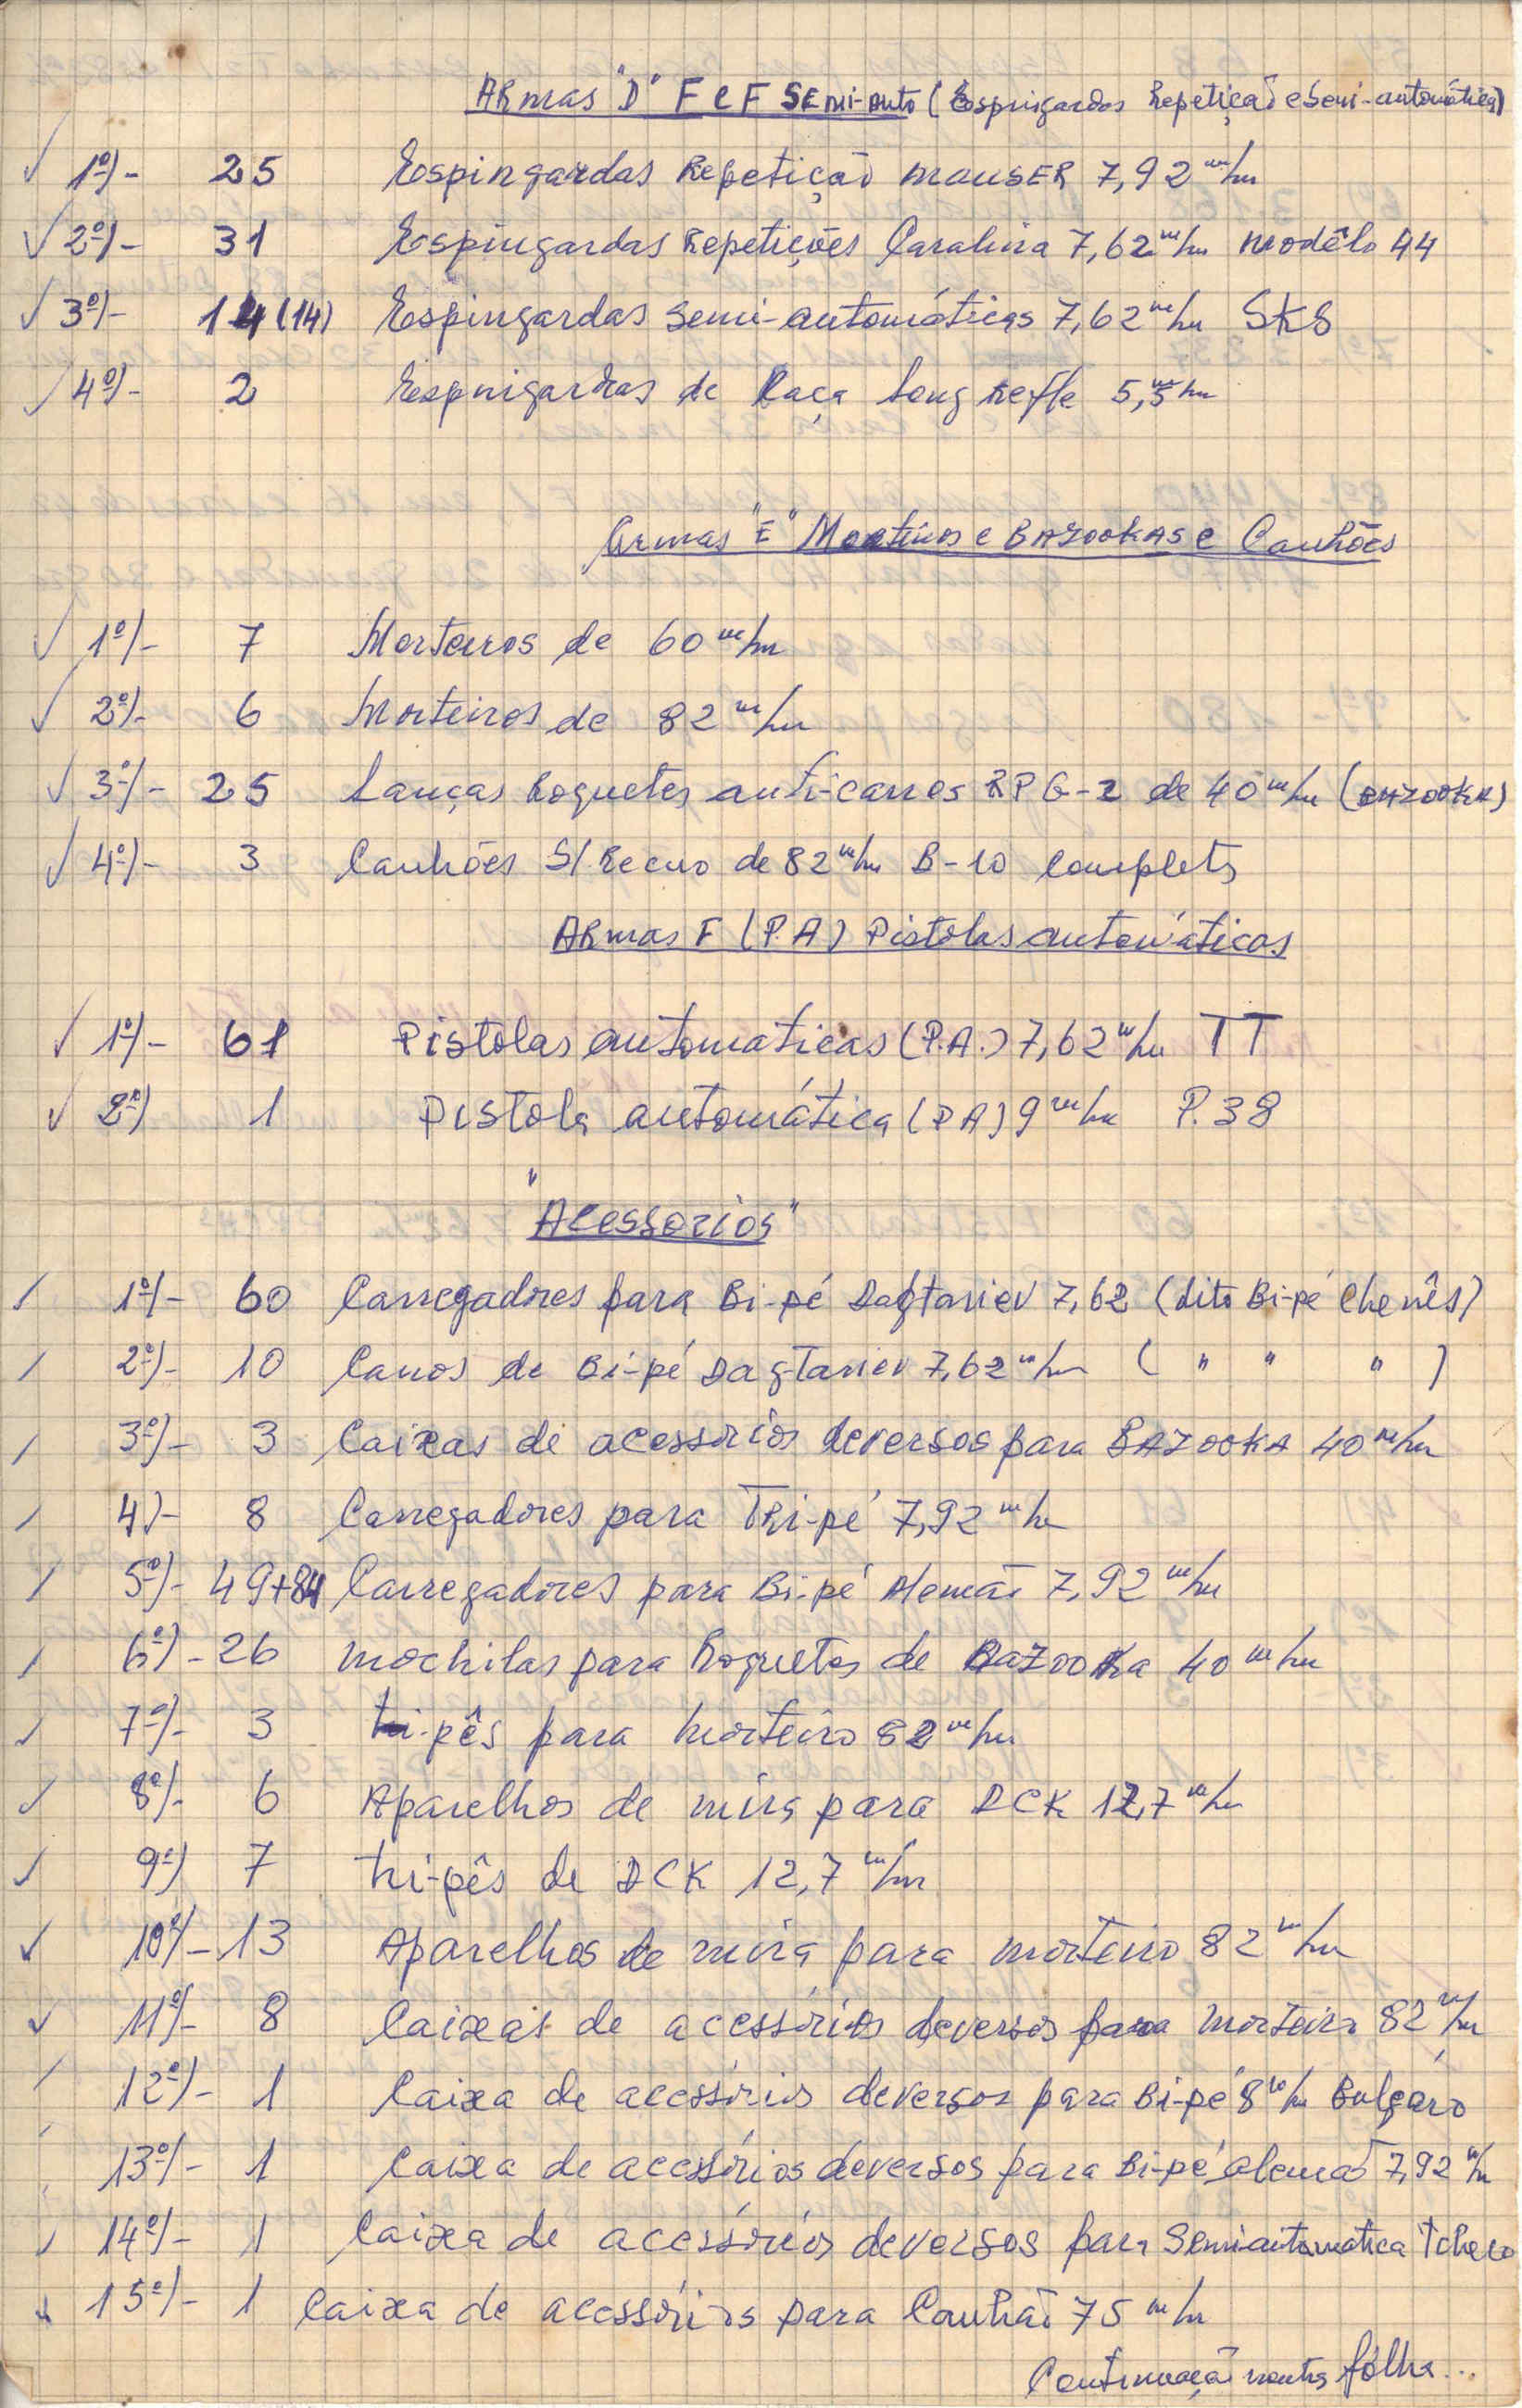 Armas "D" F e F Semi-Auto (Espingardas Repetição e Semi-automática)
✓ 1º)- 25 Espingardas Repetição MAUSER 7,92 m/m
✓ 2º)- 31 Espingardas Repetições Carabina 7,62 m/m modêlo 44
✓ 3º)- 14 (14) Espingardas Semi-automáticas 7,62 m/m SKS
✓ 4º)- 2 Espingardas de Caça Long Refle 5,5 m/m
Armas "E" Morteiros e BAZOOKAS e Canhões
✓ 1º)- 7 Morteiros de 60 m/m
✓ 2º)- 6 Morteiros de 82 m/m
✓ 3º)- 25 Lanças Roquetes anti-carros RPG-2 de 40 m/m (BAZOOKA)
✓ 4º)- 3 Canhões S/ Recuo de 82 m/m B-10 Completos
Armas F (P.A) Pistolas automáticas
✓ 1º)- 61 Pistolas automaticas (P.A.) 7,62 m/m TT
✓ 2º) 1 Pistola automática (PA) 9 m/m P.38
"Acessorios"
✓ 1º)- 60 Carregadores para Bi-pé Dagtariev 7,62 (dito Bi-pé Chenês)
✓ 2º)- 10 Canos de Bi-pé Dagtariev 7,62 m/m ( " " " )
✓ 3º)- 3 Caixas de acessórios deversos para BAZOOKA 40 m/m
✓ 4)- 8 Carregadores para Tri-pé 7,92 m/m
✓ 5º)- 49+84 Carregadores para Bi-pé Alemão 7,92 m/m
✓ 6º)- 26 mochilas para Roquetes de BaZooKa 40 m/m
✓ 7º)- 3 tri-pês para morteiro 82 m/m
✓ 8º)- 6 Aparelhos de mira para DCK 12,7 m/m
✓ 9º) 7 tri-pês de DCK 12,7 m/m
✓ 10º)- 13 Aparelhos de mira para morteiro 82 m/m
✓ 11º)- 8 Caixas de acessórios deversos para morteiro 82 m/m
✓ 12º)- 1 Caixa de acessórios deversos para Bi-pé 8 m/m Bulgáro
✓ 13º)- 1 Caixa de acessórios deversos para Bi-pé alemão 7,92 m/m
✓ 14º)- 1 Caixa de acessórios deversos para Semiautomatica Tcheco
✓ 15º)- 1 Caixa de acessórios para Canhão 75 m/m
Continuação noutra fôlha...